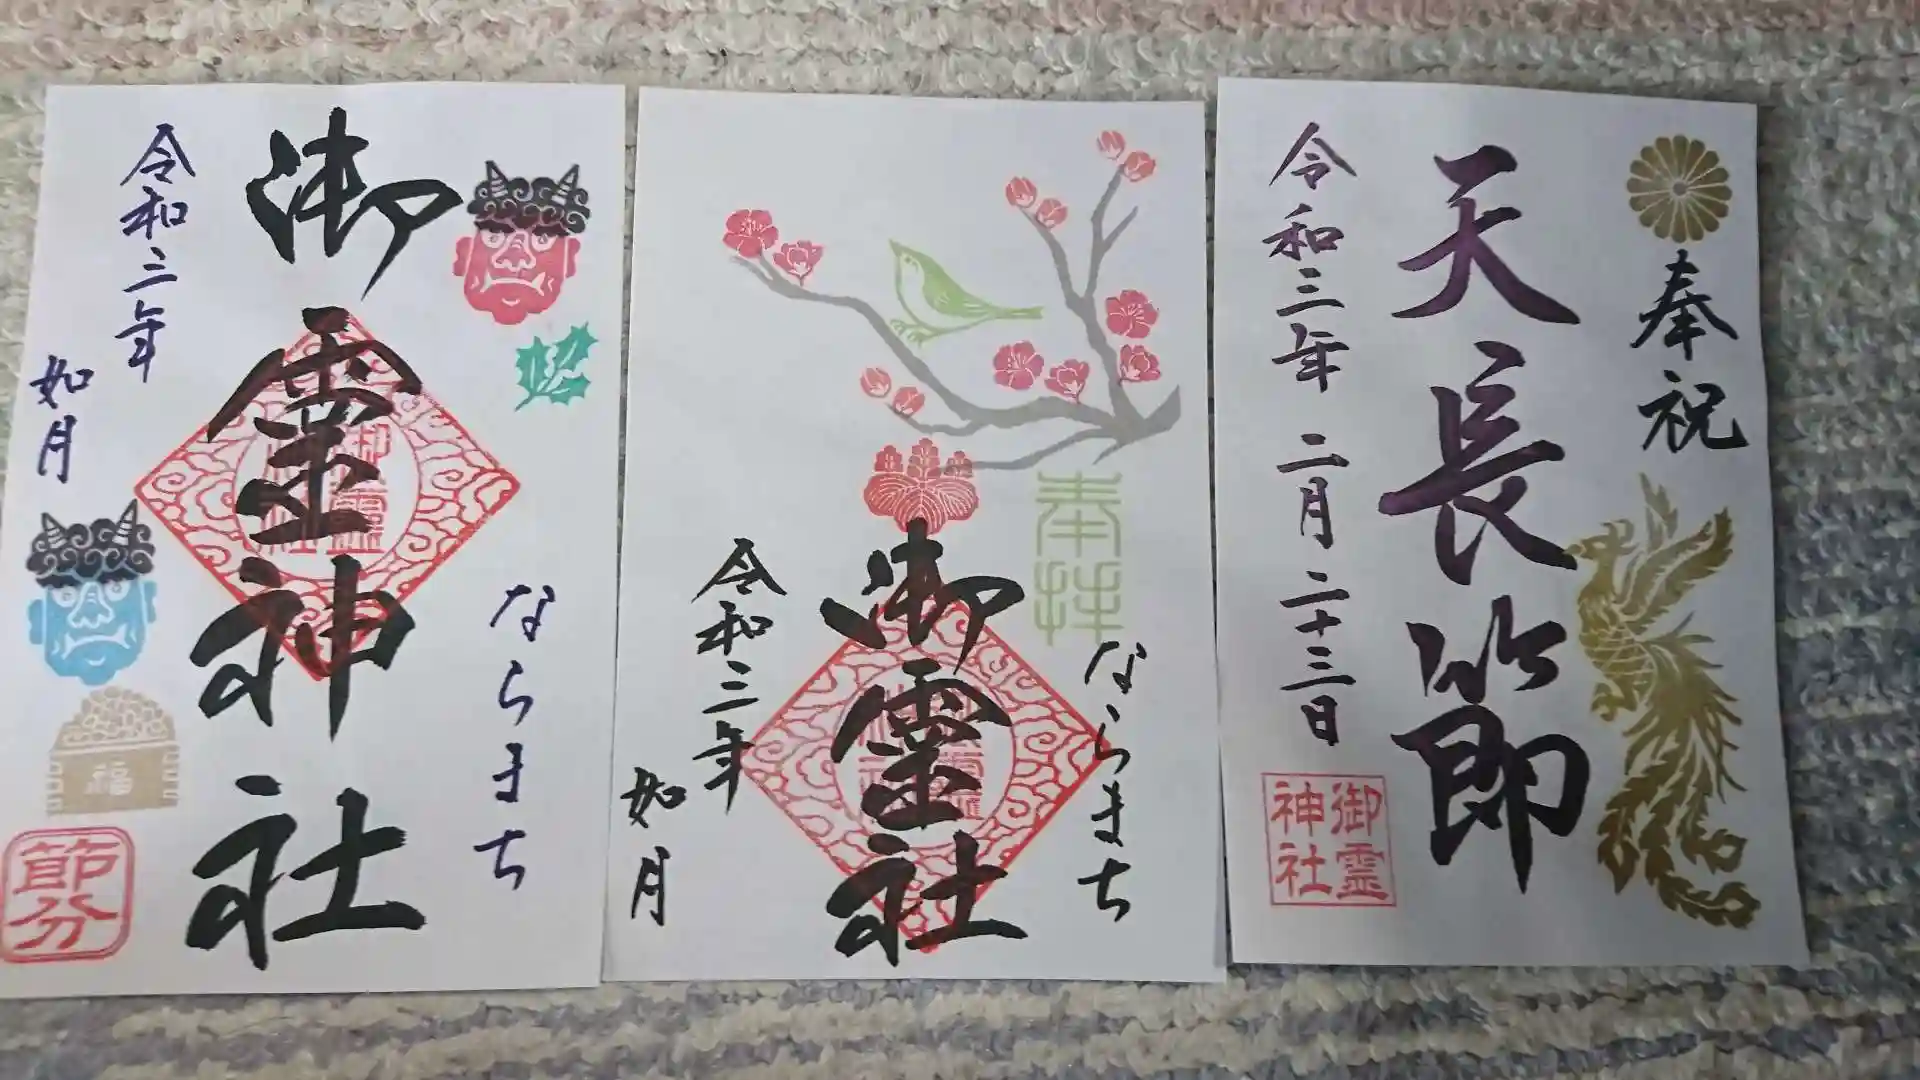 御霊神社
令和三年
如月
ならまち
福
節分
奉拝
ならまち
御霊社
令和三年
如月
奉祝
天長節
令和三年 二月二十三日
御霊
神社